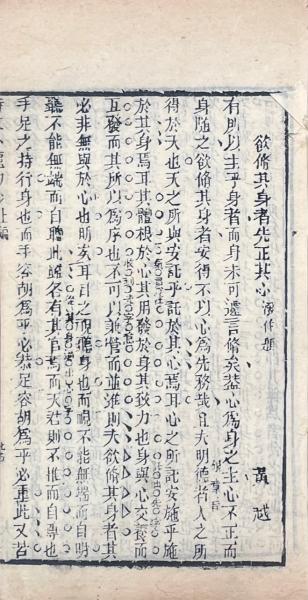 欲脩其身者先正其心 黃越
有所以主乎身者而身未可遽言脩矣蓋心爲身之主心不正而
身隨之欲脩其身者安得不以心爲先務哉且夫明德者人之所
得於天也天之所與安託乎託於其心焉耳心之所託安施乎施
於其身焉耳其體根於心其用發於身其致力也身與心交養而
互發而其所以爲序也不可以兼營而並進則夫欲脩其身者其
必非無與於心也明矣耳目之視聽身也而視不能無端而自明
聽不能無端而自聰此雖各有其官焉而天君則不推而自尊也
手足之持行身也而手容胡爲乎必恭足容胡爲乎必重此又若